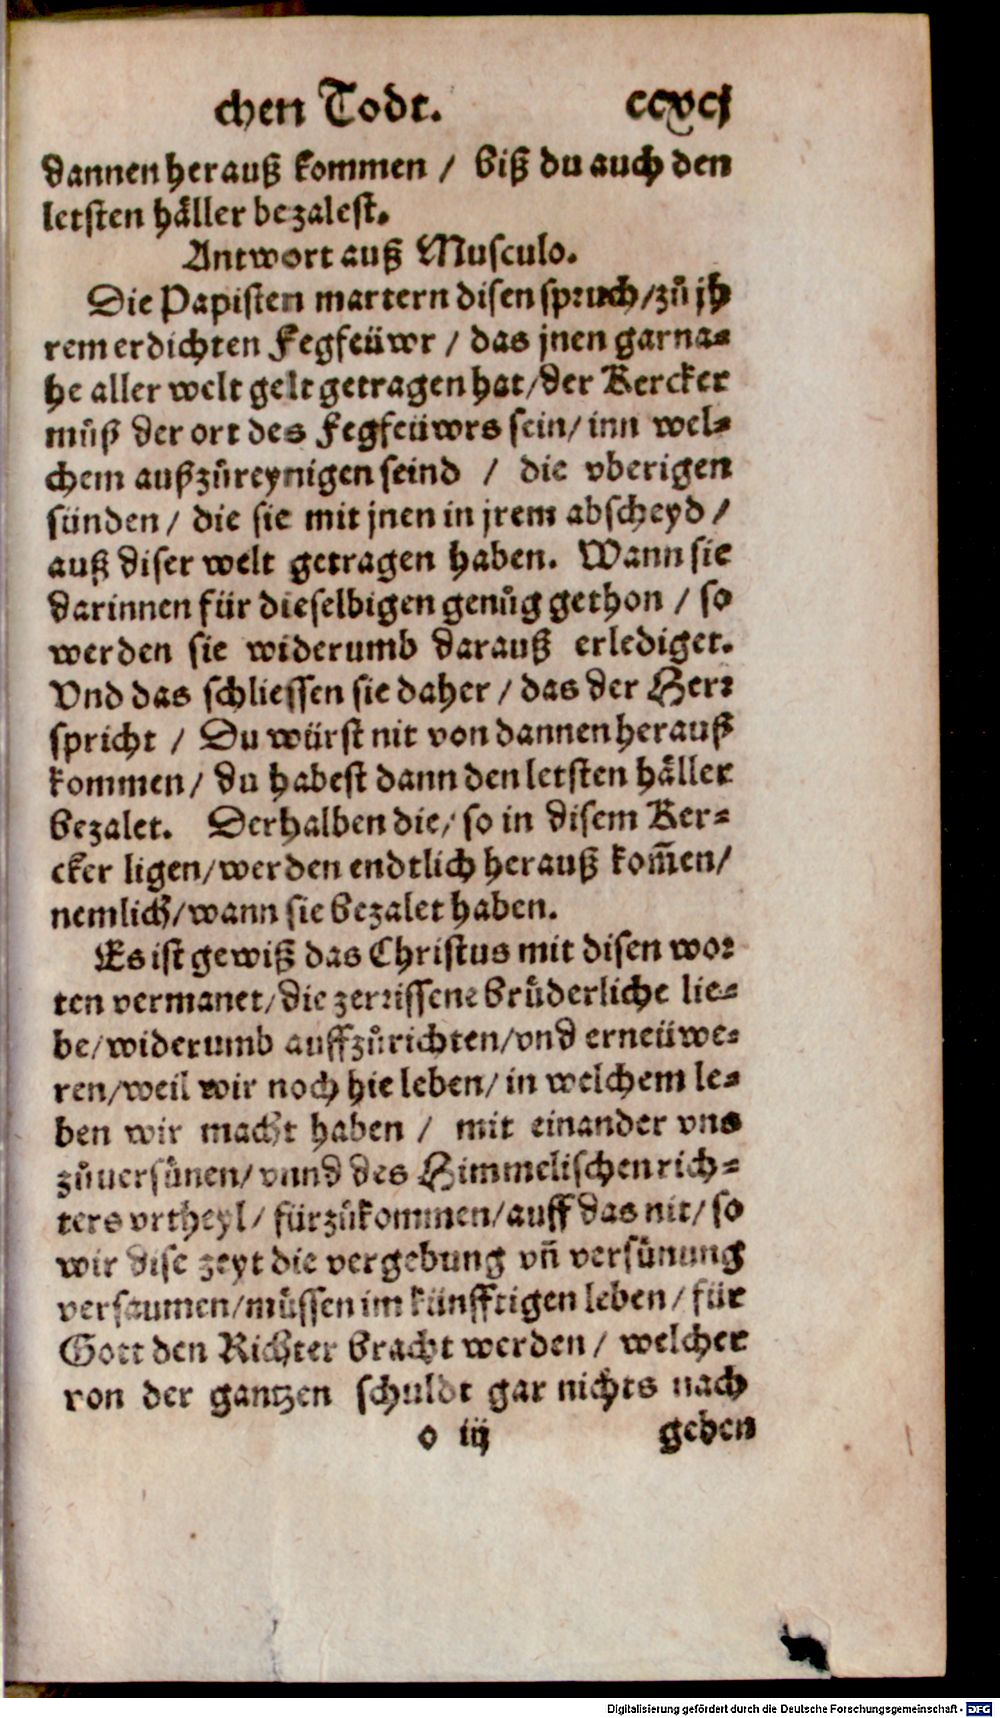 chen Todt. ccxcj
dannen herauß kommen / biß du auch den
letsten häller bezalest.
Antwort auß Musculo.
Die Papisten martern disen spruch / zů jh
rem erdichten Fegfeüwr / das jnen gar na-
he aller welt gelt getragen hat / der Kercker
můß der ort des Fegfeüwrs sein / inn wel-
chem außzůreynigen seind / die vberigen
sünden / die sie mit jnen in jrem abscheyd /
auß diser welt getragen haben. Wann sie
darinnen für dieselbigen genůg gethon / so
werden sie widerumb darauß erlediget.
Vnd das schliessen sie daher / das der Herr
spricht / Du würst nit von dannen herauß
kommen / du habest dann den letsten häller
bezalet. Derhalben die / so in disem Ker-
cker ligen / werden endtlich herauß kom̃en /
nemlich / wann sie bezalet haben.
Es ist gewiß das Christus mit disen wor
ten vermanet / die zerrissene brůderliche lie-
be / widerumb auffzůrichten / vnd erneüwe-
ren / weil wir noch hie leben / in welchem le-
ben wir macht haben / mit einander vns
zůuersůnen / vnnd des Himmelischen rich-
ters vrtheyl / fürzůkommen / auff das nit / so
wir dise zeyt die vergebung vñ versůnung
versaumen / můssen im künfftigen leben / für
Gott den Richter bracht werden / welcher
von der gantzen schuldt gar nichts nach
o iij geben
Digitalisierung gefördert durch die Deutsche Forschungsgemeinschaft - DFG